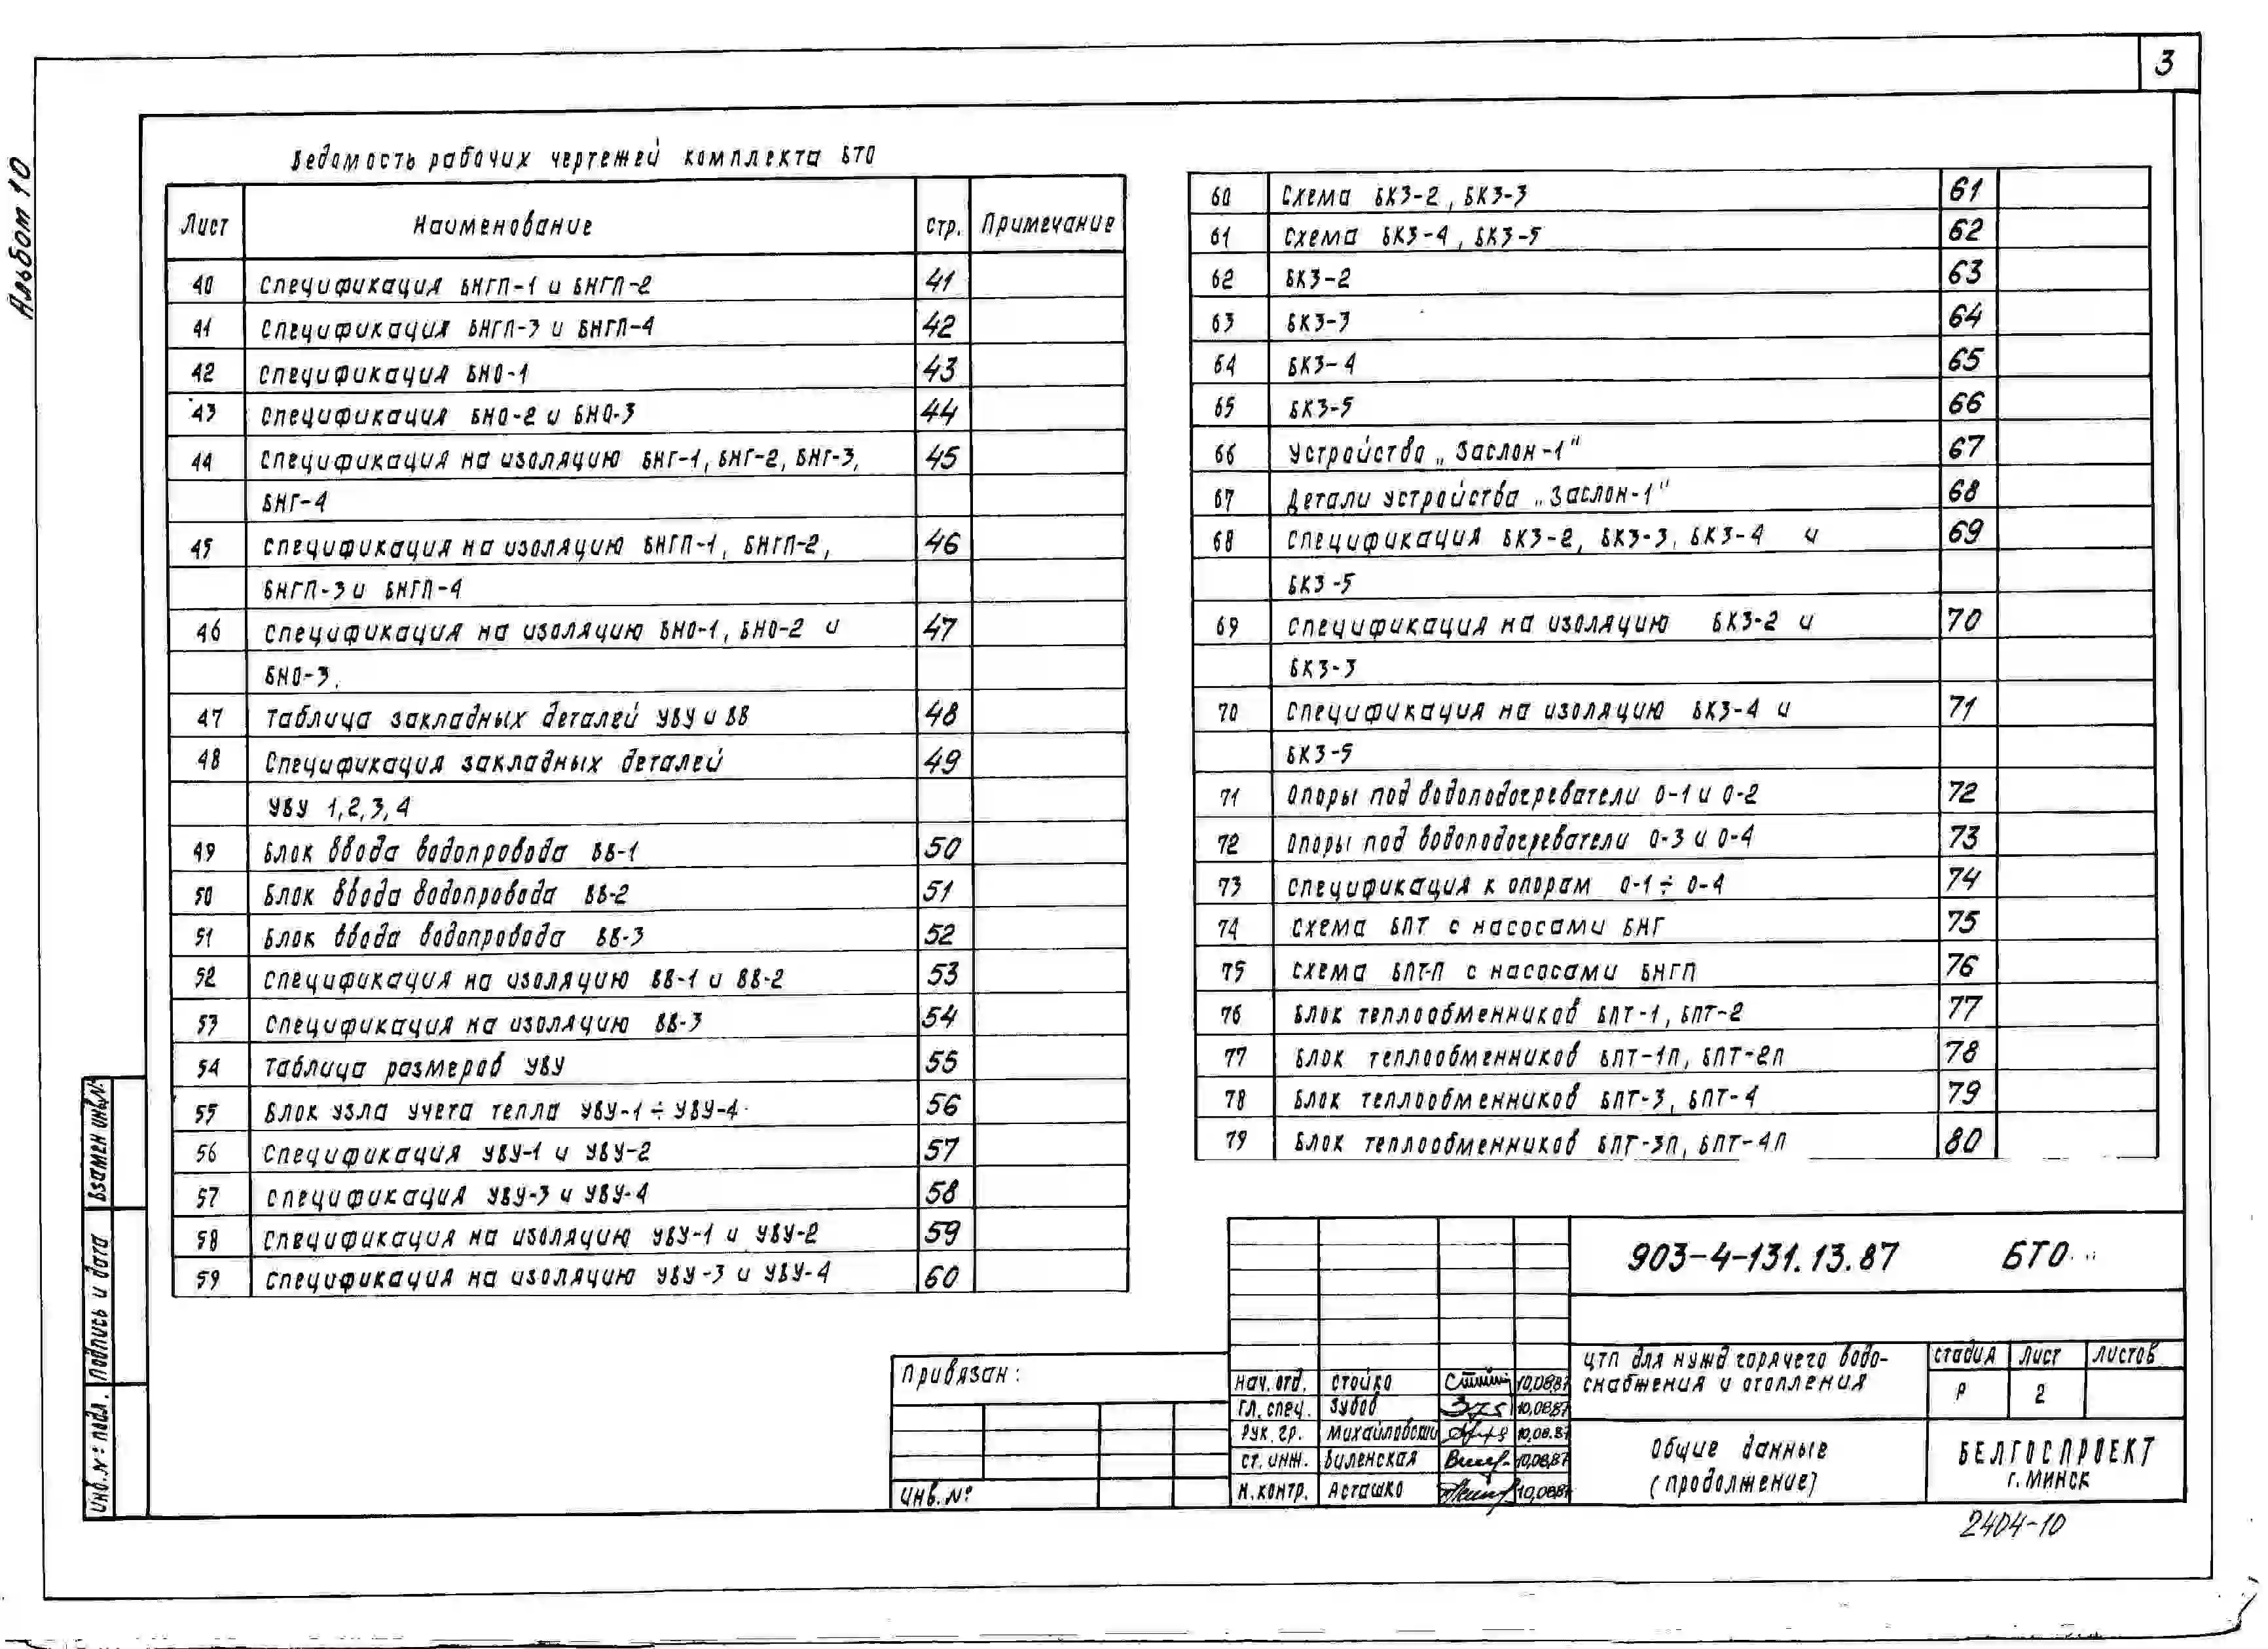 3
Альбом 10
Ведомость рабочих чертежей комплекта БТО
Лист Наименование стр. Примечание
40 Спецификация БНГП-1 и БНГП-2 41
41 Спецификация БНГП-3 и БНГП-4 42
42 Спецификация БНО-1 43
43 Спецификация БНО-2 и БНО-3 44
44 Спецификация на изоляцию БНГ-1, БНГ-2, БНГ-3, 45
БНГ-4
45 Спецификация на изоляцию БНГП-1, БНГП-2, 46
БНГП-3 и БНГП-4
46 Спецификация на изоляцию БНО-1, БНО-2 и 47
БНО-3.
47 Таблица закладных деталей УВУ и ВВ 48
48 Спецификация закладных деталей 49
УВУ 1,2,3,4
49 Блок ввода водопровода ВВ-1 50
50 Блок ввода водопровода ВВ-2 51
51 Блок ввода водопровода ВВ-3 52
52 Спецификация на изоляцию ВВ-1 и ВВ-2 53
53 Спецификация на изоляцию ВВ-3 54
54 Таблица размеров УВУ 55
55 Блок узла учета тепла УВУ-1÷УВУ-4 56
56 Спецификация УВУ-1 и УВУ-2 57
57 Спецификация УВУ-3 и УВУ-4 58
58 Спецификация на изоляцию УВУ-1 и УВУ-2 59
59 Спецификация на изоляцию УВУ-3 и УВУ-4 60
60 Схема БКЗ-2, БКЗ-3 61
61 Схема БКЗ-4, БКЗ-5 62
62 БКЗ-2 63
63 БКЗ-3 64
64 БКЗ-4 65
65 БКЗ-5 66
66 Устройство „Заслон-1" 67
67 Детали устройства „Заслон-1" 68
68 Спецификация БКЗ-2, БКЗ-3, БКЗ-4 и 69
БКЗ-5
69 Спецификация на изоляцию БКЗ-2 и 70
БКЗ-3
70 Спецификация на изоляцию БКЗ-4 и 71
БКЗ-5
71 Опоры под водоподогреватели О-1 и О-2 72
72 Опоры под водоподогреватели О-3 и О-4 73
73 Спецификация к опорам О-1÷О-4 74
74 Схема БПТ с насосами БНГ 75
75 Схема БПТ-П с насосами БНГП 76
76 Блок теплообменников БПТ-1, БПТ-2 77
77 Блок теплообменников БПТ-1П, БПТ-2П 78
78 Блок теплообменников БПТ-3, БПТ-4 79
79 Блок теплообменников БПТ-3П, БПТ-4П 80
Взамен инв.№
Подпись и дата
Инв.№ подл.
Привязан:
Инв.№
Нач. отд. Стойко 10.08.87
Гл. спец. Зубов 10.08.87
Рук. гр. Михайловский 10.08.87
Ст. инж. Виленская 10.08.87
Н. контр. Асташко 10.08.87
903-4-131.13.87 БТО
ЦТП для нужд горячего водо-
снабжения и отопления
стадия лист листов
Р 2
Общие данные
(продолжение)
БЕЛГОСПРОЕКТ
г. Минск
2404-10